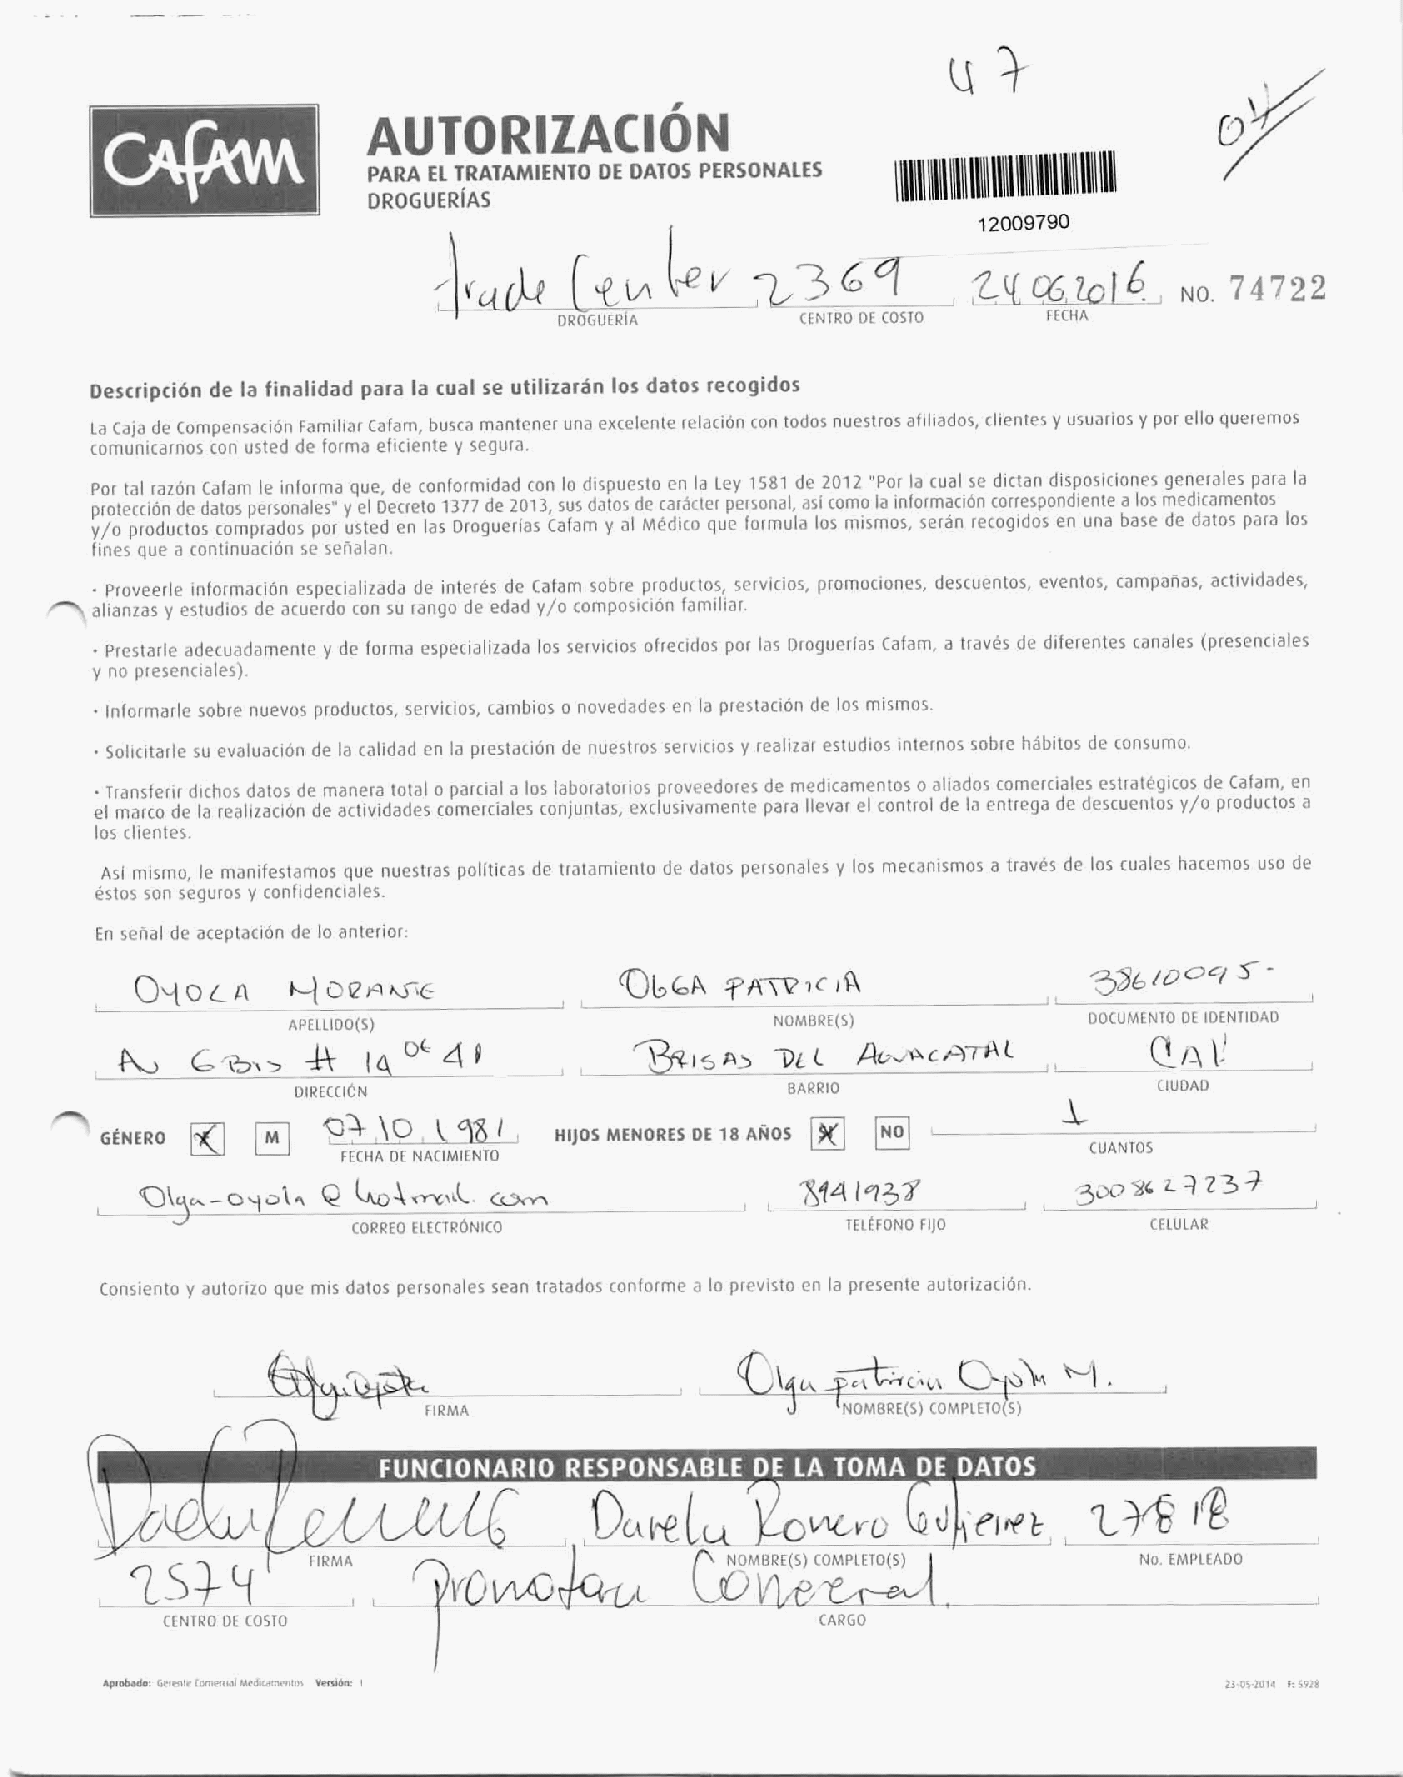 47
04
CAFAM
AUTORIZACIÓN
PARA EL TRATAMIENTO DE DATOS PERSONALES
DROGUERÍAS
12009790
Trade Center 2369 24 06 2016 NO. 74722
DROGUERÍA CENTRO DE COSTO FECHA
Descripción de la finalidad para la cual se utilizarán los datos recogidos
La Caja de Compensación Familiar Cafam, busca mantener una excelente relación con todos nuestros afiliados, clientes y usuarios y por ello queremos
comunicarnos con usted de forma eficiente y segura.
Por tal razón Cafam le informa que, de conformidad con lo dispuesto en la Ley 1581 de 2012 "Por la cual se dictan disposiciones generales para la
protección de datos personales" y el Decreto 1377 de 2013, sus datos de carácter personal, así como la información correspondiente a los medicamentos
y/o productos comprados por usted en las Droguerías Cafam y al Médico que formula los mismos, serán recogidos en una base de datos para los
fines que a continuación se señalan.
· Proveerle información especializada de interés de Cafam sobre productos, servicios, promociones, descuentos, eventos, campañas, actividades,
alianzas y estudios de acuerdo con su rango de edad y/o composición familiar.
· Prestarle adecuadamente y de forma especializada los servicios ofrecidos por las Droguerías Cafam, a través de diferentes canales (presenciales
y no presenciales).
· Informarle sobre nuevos productos, servicios, cambios o novedades en la prestación de los mismos.
· Solicitarle su evaluación de la calidad en la prestación de nuestros servicios y realizar estudios internos sobre hábitos de consumo.
· Transferir dichos datos de manera total o parcial a los laboratorios proveedores de medicamentos o aliados comerciales estratégicos de Cafam, en
el marco de la realización de actividades comerciales conjuntas, exclusivamente para llevar el control de la entrega de descuentos y/o productos a
los clientes.
Así mismo, le manifestamos que nuestras políticas de tratamiento de datos personales y los mecanismos a través de los cuales hacemos uso de
éstos son seguros y confidenciales.
En señal de aceptación de lo anterior:
OYOLA MORANTE OLGA PATRICIA 38610095-
APELLIDO(S) NOMBRE(S) DOCUMENTO DE IDENTIDAD
Av 6 Bis # 19 06 41 BRISAS DEL AGUACATAL CALI
DIRECCIÓN BARRIO CIUDAD
GÉNERO X M 07 10 1981 HIJOS MENORES DE 18 AÑOS X NO 1
FECHA DE NACIMIENTO CUANTOS
Olga-oyola@hotmail.com 8941938 3008627237
CORREO ELECTRÓNICO TELÉFONO FIJO CELULAR
Consiento y autorizo que mis datos personales sean tratados conforme a lo previsto en la presente autorización.
Olga patricia Oyola M.
FIRMA NOMBRE(S) COMPLETO(S)
FUNCIONARIO RESPONSABLE DE LA TOMA DE DATOS
Romero Gutierrez 27818
FIRMA NOMBRE(S) COMPLETO(S) No. EMPLEADO
2574
CENTRO DE COSTO CARGO
Aprobado: Gerente Comercial Medicamentos Versión: 1 23-05-2014 F: 5928